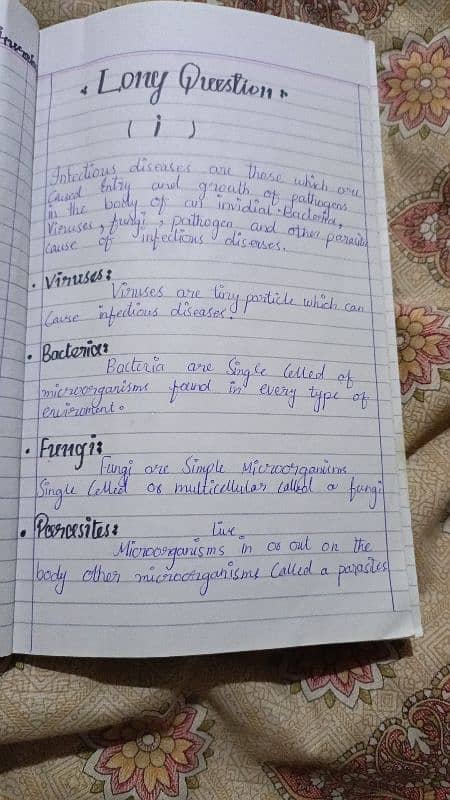 Long Question
( i )
Infectious diseases are those which are
Caused Entry and growth of pathogens
in the body of an invidial. Bacteria,
Viruses, fungi, pathogen and other parasite
cause of infectious diseases.
• Viruses:
Viruses are tiny particle which can
Cause infectious diseases.
• Bacteria:
Bacteria are Single Celled of
microorganisms found in every type of
enviroment.
• Fungi:
Fungi are Simple Microorganisms
Single Celled or multicellular called a fungi
• Paracsites:
Live
Microorganisms in or out on the
body other microorganisms Called a parasites